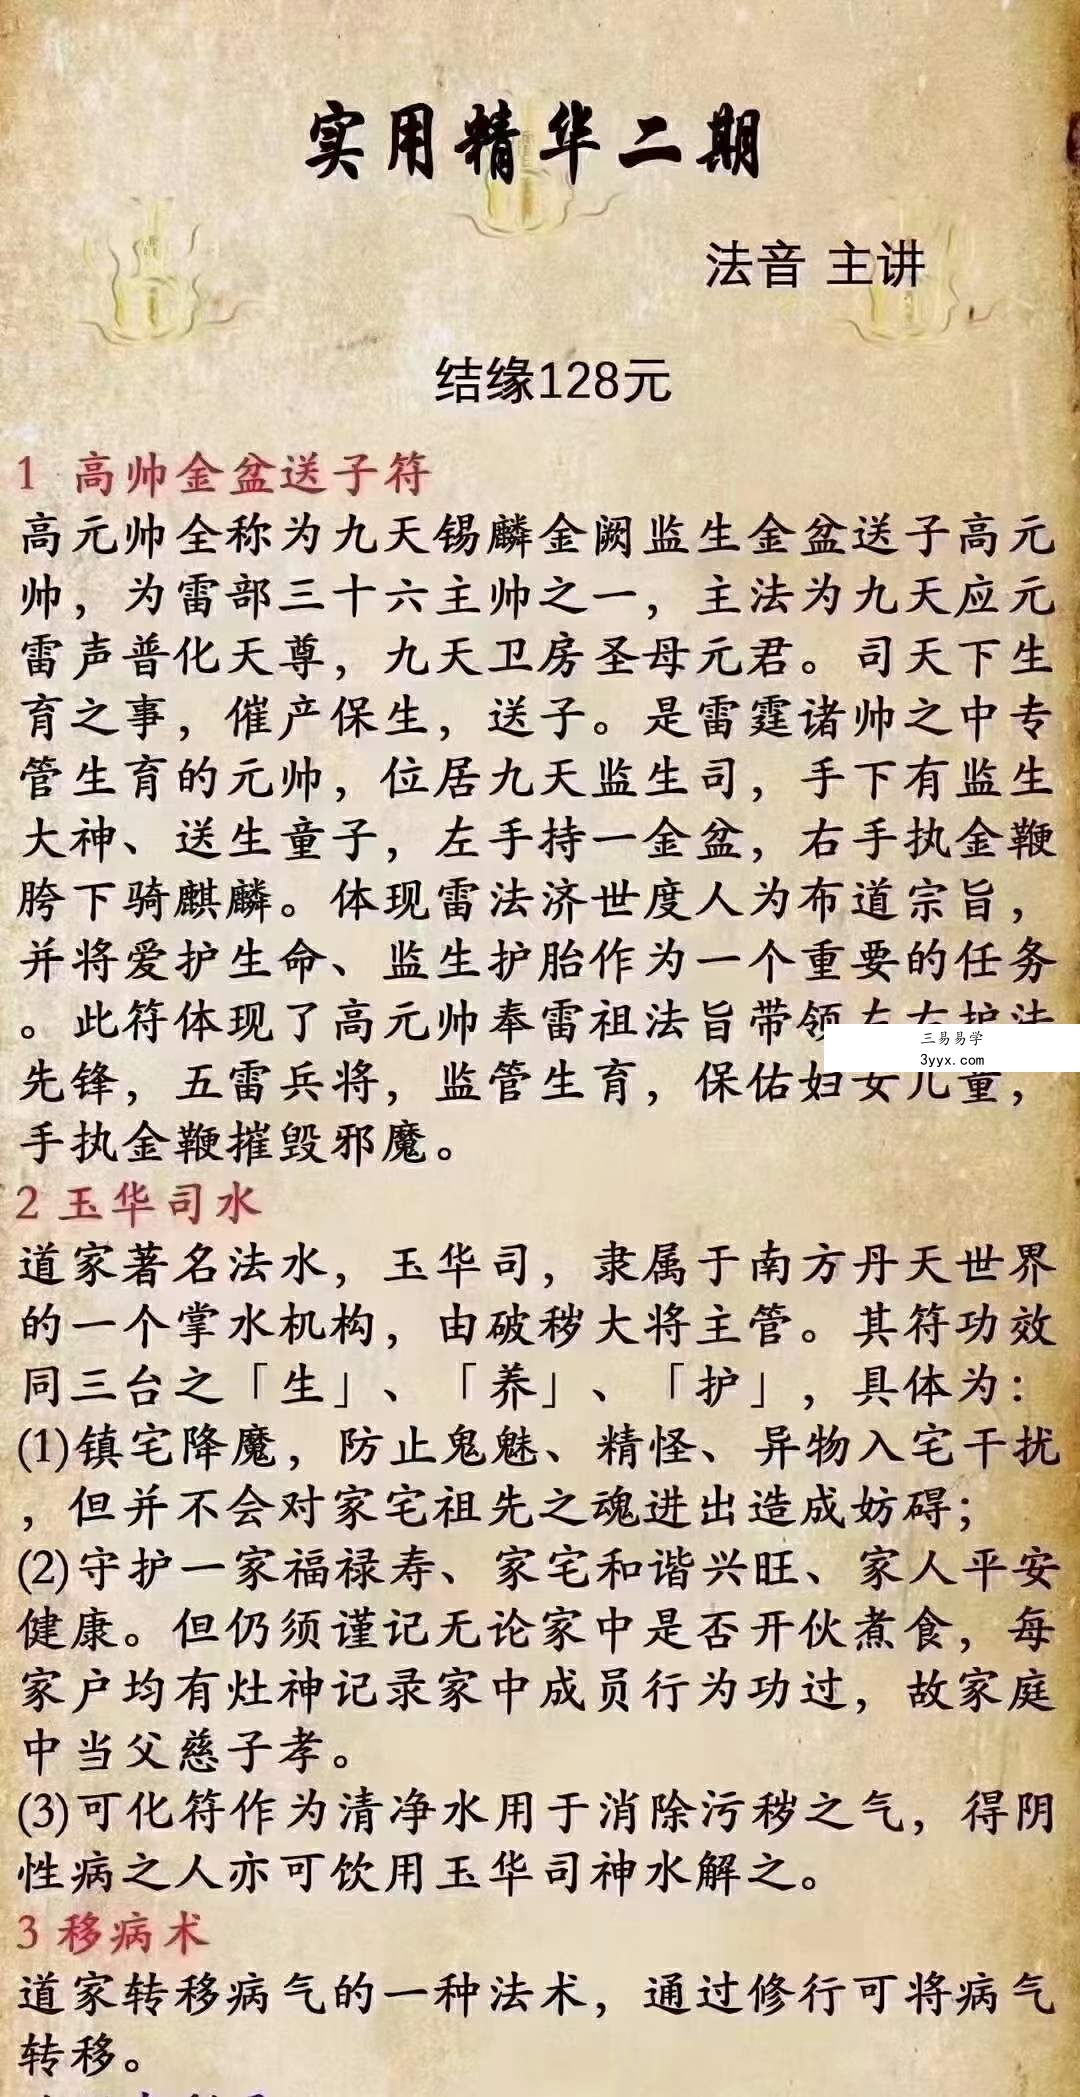 实用精华二期
法音 主讲
结缘128元
1 高帅金盆送子符
高元帅全称为九天锡麟金阙监生金盆送子高元
帅，为雷部三十六主帅之一，主法为九天应元
雷声普化天尊，九天卫房圣母元君。司天下生
育之事，催产保生，送子。是雷霆诸帅之中专
管生育的元帅，位居九天监生司，手下有监生
大神、送生童子，左手持一金盆，右手执金鞭
胯下骑麒麟。体现雷法济世度人为布道宗旨，
并将爱护生命、监生护胎作为一个重要的任务
。此符体现了高元帅奉雷祖法旨带领左右护法
三易易学
3yyx.com
先锋，五雷兵将，监管生育，保佑妇女儿童，
手执金鞭摧毁邪魔。
2 玉华司水
道家著名法水，玉华司，隶属于南方丹天世界
的一个掌水机构，由破秽大将主管。其符功效
同三台之「生」、「养」、「护」，具体为：
(1)镇宅降魔，防止鬼魅、精怪、异物入宅干扰
，但并不会对家宅祖先之魂进出造成妨碍；
(2)守护一家福禄寿、家宅和谐兴旺、家人平安
健康。但仍须谨记无论家中是否开伙煮食，每
家户均有灶神记录家中成员行为功过，故家庭
中当父慈子孝。
(3)可化符作为清净水用于消除污秽之气，得阴
性病之人亦可饮用玉华司神水解之。
3 移病术
道家转移病气的一种法术，通过修行可将病气
转移。